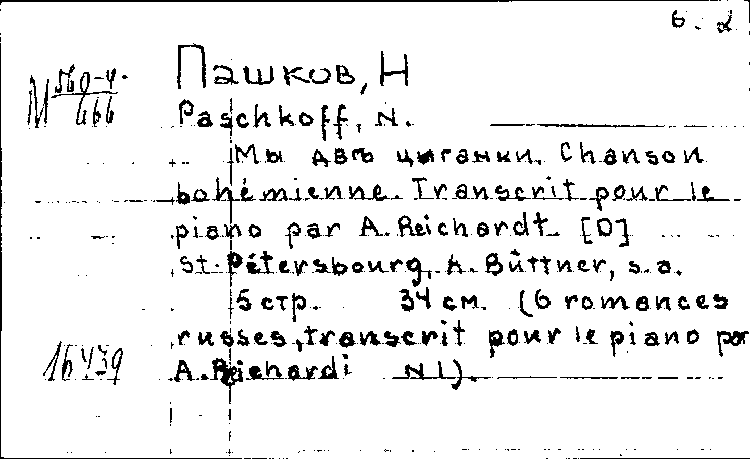 б. 2
Пашков, Н
М 560-4.
466
Paschkoff, N.
Мы двѣ цыганки. Chanson
bohémienne. Transcrit pour le
piano par A. Reichardt. [D]
St. Pétersbourg, A. Büttner, s.a.
5 стр. 34 см. (6 romances
russes, transcrit pour le piano par
16439 A. Reichardi N 1).